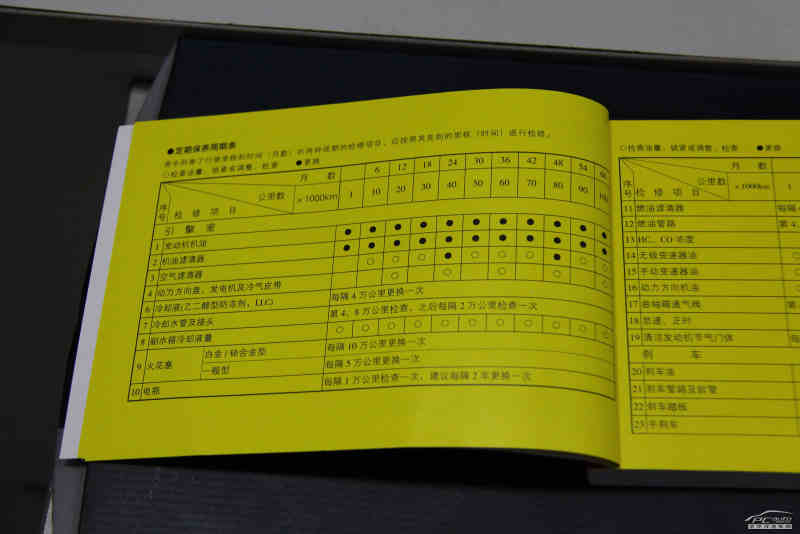 ●定期保养周期表
○检查油量、锁紧或调整、检查 ●更换
月 数 6 12 18 24 30 36 42 48 54
公里数 ×1000km 1 10 20 30 40 50 60 70 80 90 100
序号 检修项目
引擎室
1 发动机机油 ● ● ● ● ● ● ● ● ● ● ●
2 机油滤清器 ● ● ● ● ● ● ● ● ● ● ●
3 空气滤清器 ○ ○ ○ ● ○ ○ ○ ● ○ ○
4 动力方向盘、发电机及冷气皮带 ○ ○ ○ ○ ○
6 冷却液(乙二醇型防冻剂, LLC) 每隔 4 万公里更换一次
7 冷却水管及接头 第 4、8 万公里检查、之后每隔 2 万公里检查一次
8 副水箱冷却液量 ○ ○ ○ ○ ○ ○ ○ ○ ○ ○ ○
9 火花塞 白金/铱合金型 每隔 10 万公里更换一次
一般型 每隔 5 万公里更换一次
10 电瓶 每隔 1 万公里检查一次、建议每隔 2 年更换一次
○检查油量、锁紧或调整、检查 ●更换
月 数
公里数 ×1000km 1
序号 检修项目
11 燃油滤清器 每隔
12 燃油管路 第 4
13 HC、CO 浓度
14 无级变速器油
15 手动变速器油
16 动力方向机油
17 曲轴箱通气阀
18 怠速、正时
19 清洁发动机节气门体
刹 车
20 刹车油
21 刹车管路及软管
22 刹车踏板
23 手刹车
PCauto